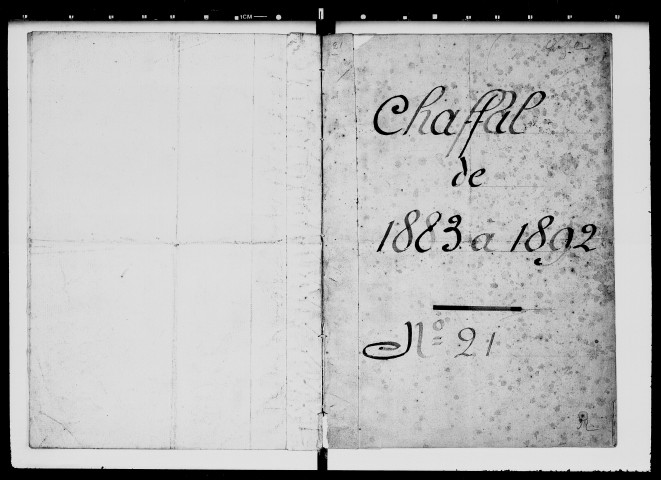 1CM
21
Chaffal
de
1883 à 1892
Nº 21